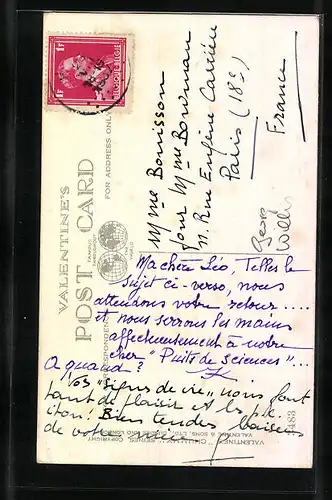 1F 1F
BELGIQUE-BELGIE
VALENTINE'S
POST CARD
FAMOUS THROUGHOUT
THE WORLD
FOR ADDRESS ONLY
CORRESPONDENCE
Mme Bouisson
pour Mme Bowman
11. Rue Eugène Carrière
Paris (18e)
France
Georg
Willis
Ma chère Léo, Telles le
sujet ci-verso, nous
attendons votre retour....
et nous serrons les mains
affectueusement à notre
cher "Puits de Sciences"...
A quand?
Vos "signes de vie" nous font
tant de plaisir et
! Bien tendres baisers
de votre
VALENTINE'S SERIES COPYRIGHT
VALENTINE & SONS, LTD., DUNDEE AND LONDON